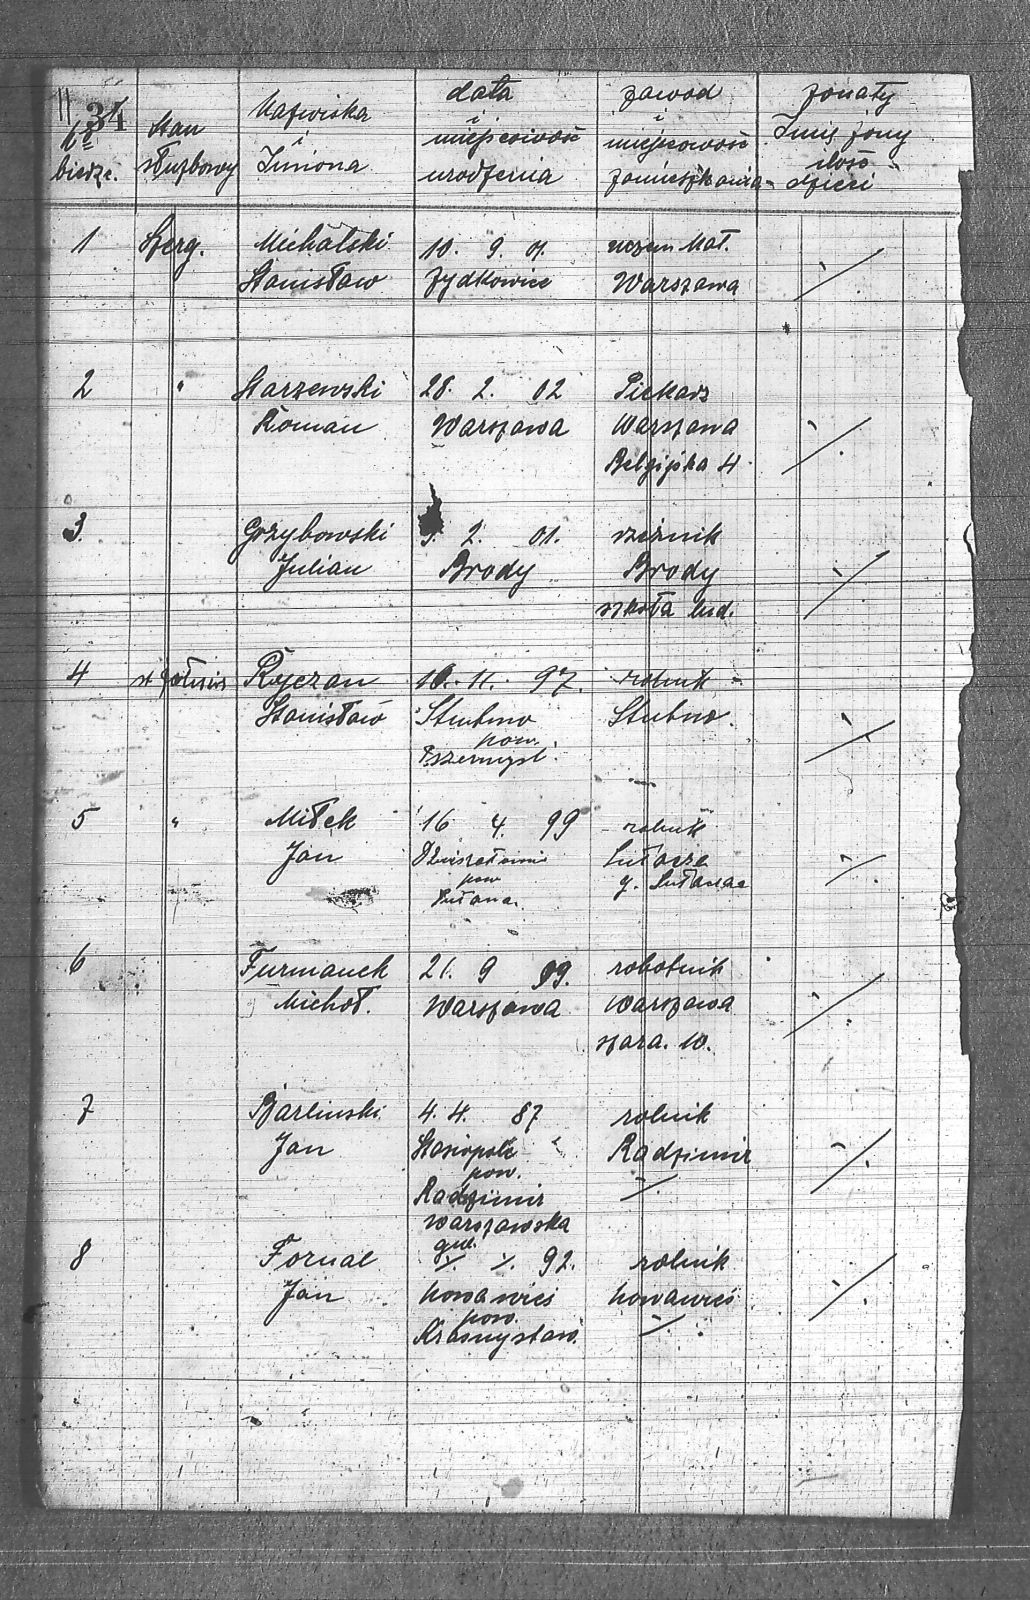 11 34
L. bieżc.
Stan służbowy
Nazwiska i Imiona
data i miejscowość urodzenia
zawod i miejscowość zamieszkania
żonaty Imię żony ilość dzieci
1 Serg. Michalski 10. 9. 01. uczen Mat.
Stanisław Żydkowice Warszawa
2 " Starzewski 28. 2. 02 Piekarz
Roman Warszawa Warszawa
Belgijska 4
3. Grzybowski 2. 01. rzeźnik
Julian Brody Brody
szkoła lud.
4 st. Ryczan 10. 11. 97. rolnik
Stanisław Stubno Stubno.
pow.
Przemyśl.
5 " Miłek 16 4. 99 rolnik
Jan
pow
6 Furmanek 21. 9 09. robotnik
Michał. Warszawa Warszawa
szara. 10.
7 Barlinski 4. 4. 87 rolnik
Jan Radzimir
pow.
Radzimir
Warszawska
gub.
8 Fornal 92. rolnik
Jan Nowawieś Nowawieś
pow.
Krasnystaw.